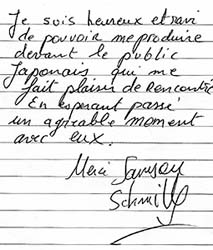 Je suis heureux et ravi
de pouvoir me produire
devant le public
Japonais qui me
fait plaisir de rencontré
En esperant passé
un agréable moment
avec eux.
Merci Samson
Schmitt